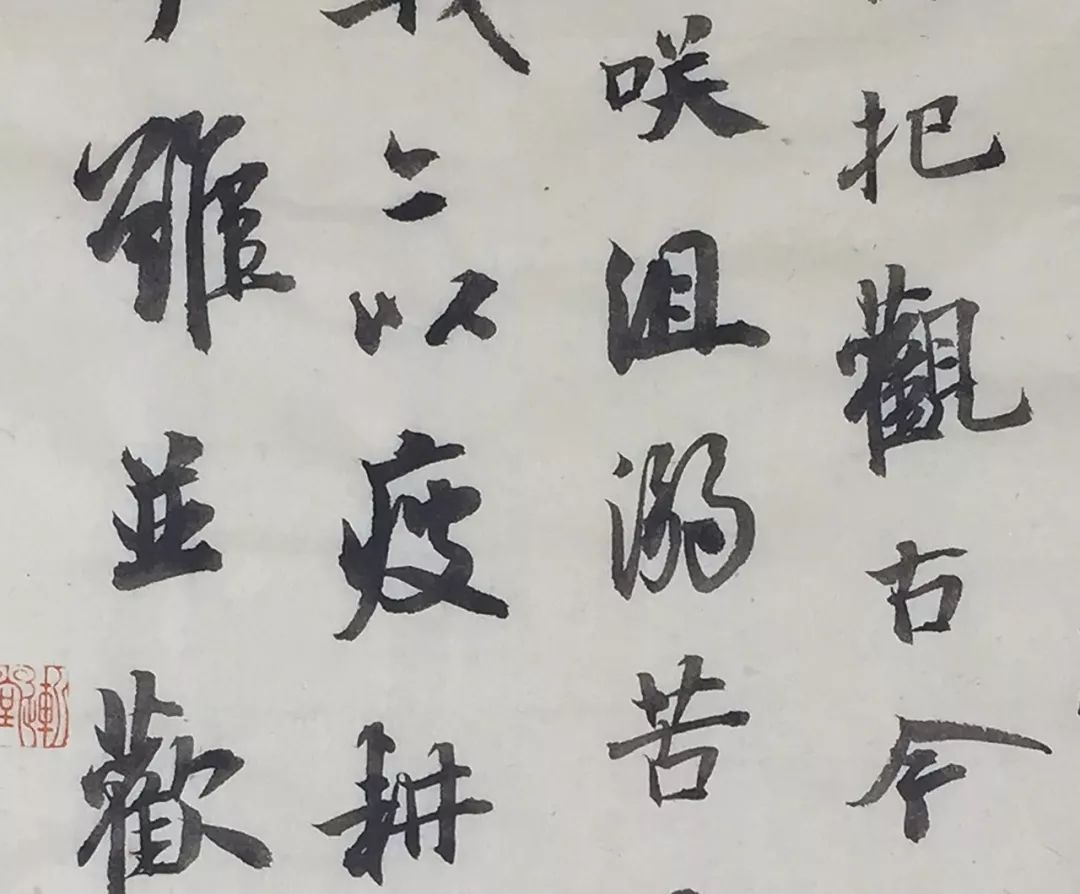 把觀古今
咲沮溺苦
以疲耕
雖並歡